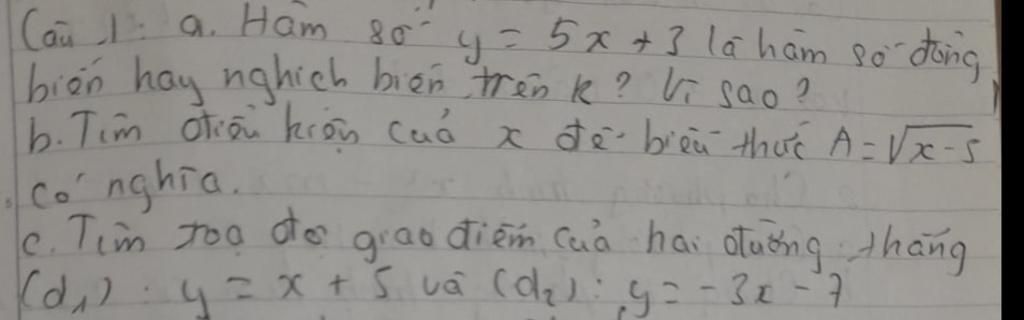 Câu 1: a. Hàm số y = 5x + 3 là hàm số đồng
biến hay nghịch biến trên R? Vì sao?
b. Tìm điều kiện của x để biểu thức A = √x-5
có nghĩa.
c. Tìm toạ độ giao điểm của hai đường thẳng
(d₁): y = x + 5 và (d₂): y = -3x - 7